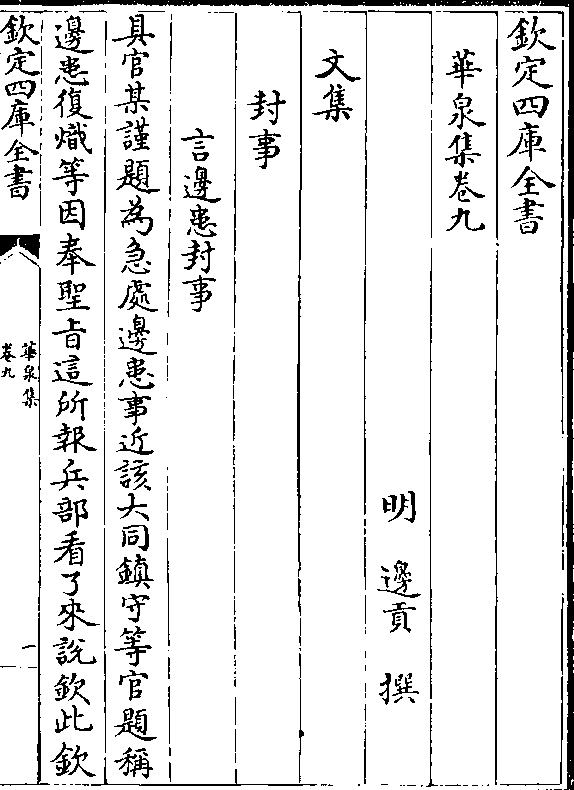 欽定四庫全書
華泉集卷九
明 邊貢 撰
文集
封事
言邊患封事
具官某謹題為急處邊患事近該大同鎮守等官題稱
邊患復熾等因奉聖旨這所報兵部看了來說欽此欽
欽定四庫全書
華泉集
卷九
一